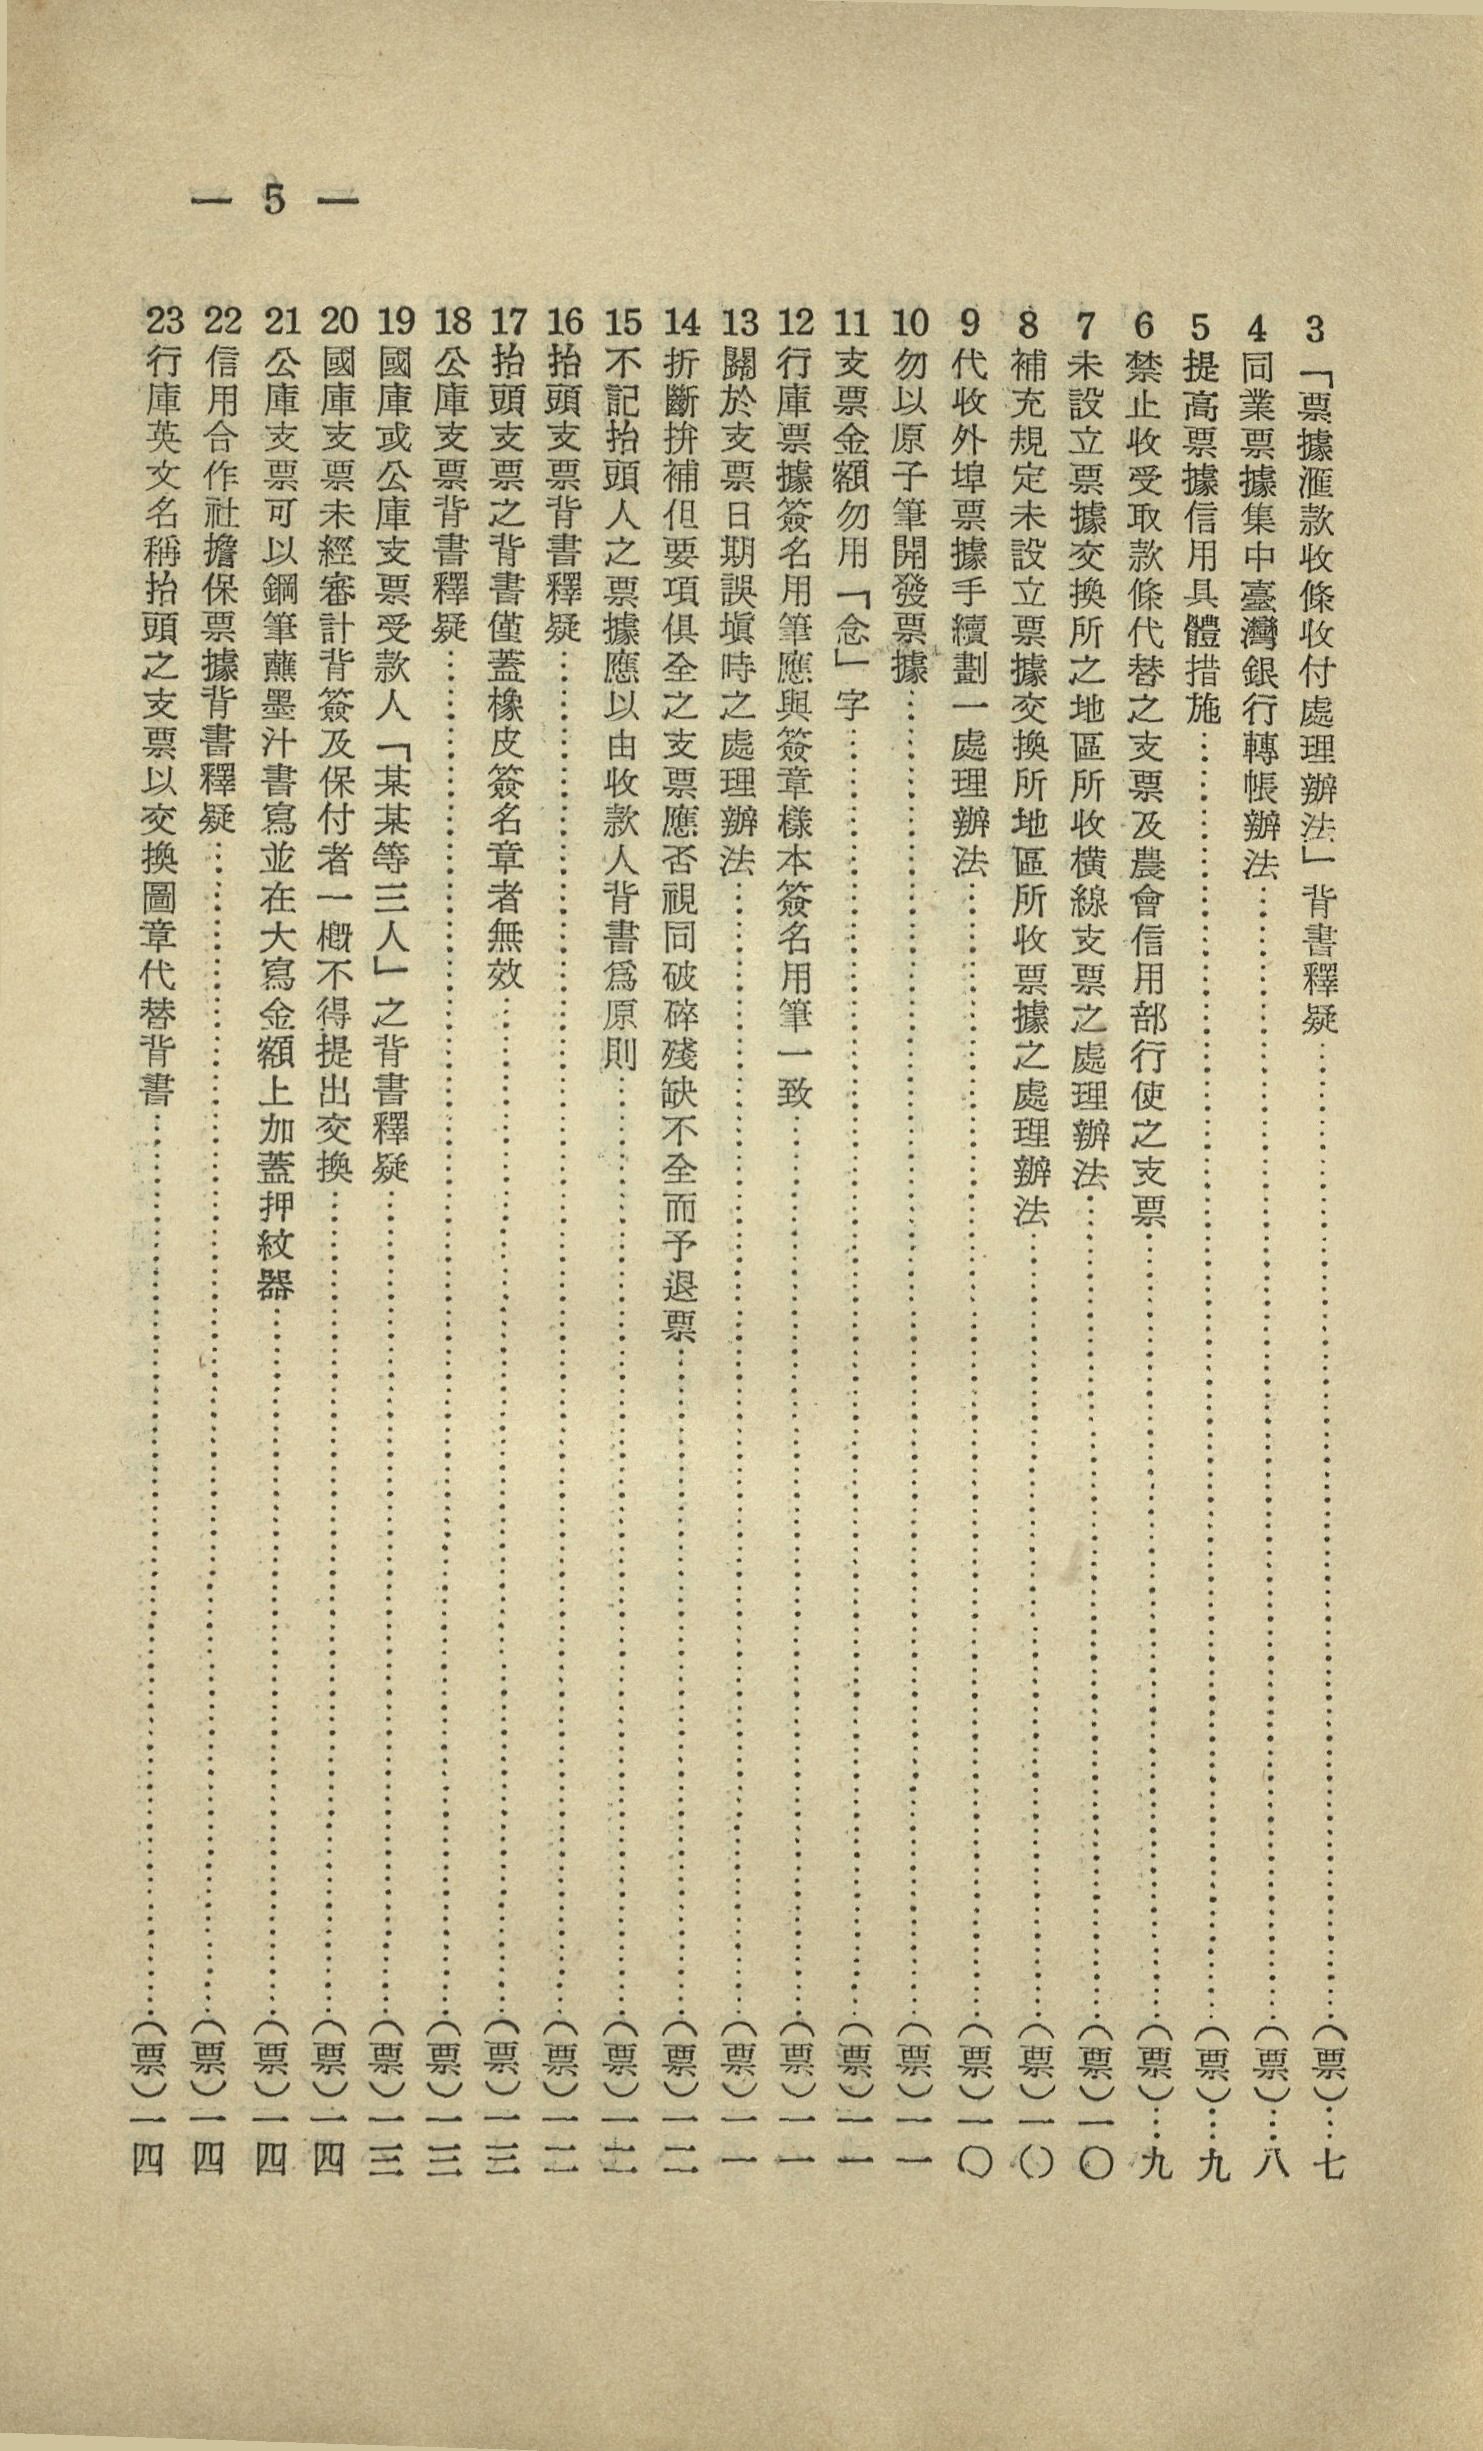 — 5 —
3「票據滙款收條收付處理辦法」背書釋疑……(票)…七
4同業票據集中臺灣銀行轉帳辦法……(票)…八
5提高票據信用具體措施……(票)…九
6禁止收受取款條代替之支票及農會信用部行使之支票……(票)…九
7未設立票據交換所之地區所收橫線支票之處理辦法……(票)一〇
8補充規定未設立票據交換所地區所收票據之處理辦法……(票)一〇
9代收外埠票據手續劃一處理辦法……(票)一〇
10勿以原子筆開發票據……(票)一一
11支票金額勿用「念」字……(票)一一
12行庫票據簽名用筆應與簽章樣本簽名用筆一致……(票)一一
13關於支票日期誤塡時之處理辦法……(票)一一
14折斷拚補但要項俱全之支票應否視同破碎殘缺不全而予退票……(票)一二
15不記抬頭人之票據應以由收款人背書爲原則……(票)一二
16抬頭支票背書釋疑……(票)一二
17抬頭支票之背書僅蓋橡皮簽名章者無效……(票)一三
18公庫支票背書釋疑……(票)一三
19國庫或公庫支票受款人「某某等三人」之背書釋疑……(票)一三
20國庫支票未經審計背簽及保付者一槪不得提出交換……(票)一四
21公庫支票可以鋼筆蘸墨汁書寫並在大寫金額上加蓋押紋器……(票)一四
22信用合作社擔保票據背書釋疑……(票)一四
23行庫英文名稱抬頭之支票以交換圖章代替背書……(票)一四